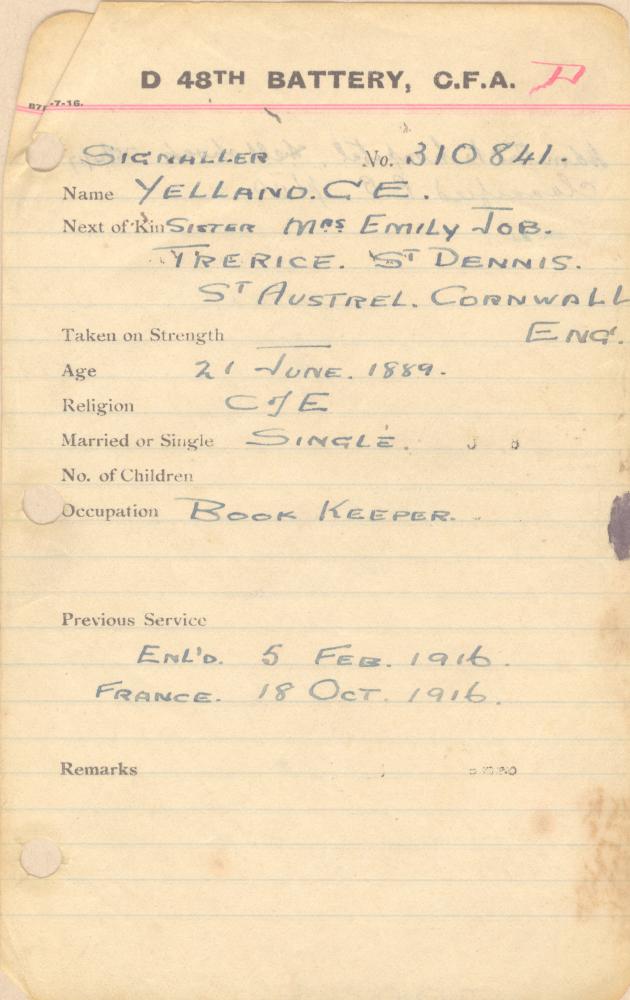 D 48TH BATTERY, C.F.A. D
-7-16.
SIGNALLER No. 310841.
Name YELLAND. C E.
Next of Kin SISTER MRS EMILY JOB.
TRERICE. ST DENNIS.
ST AUSTREL. CORNWALL
Taken on Strength ENG.
Age 21 JUNE. 1889.
Religion C of E
Married or Single SINGLE.
No. of Children
Occupation BOOK KEEPER.
Previous Service
ENL'D. 5 FEB. 1916.
FRANCE. 18 OCT. 1916.
Remarks